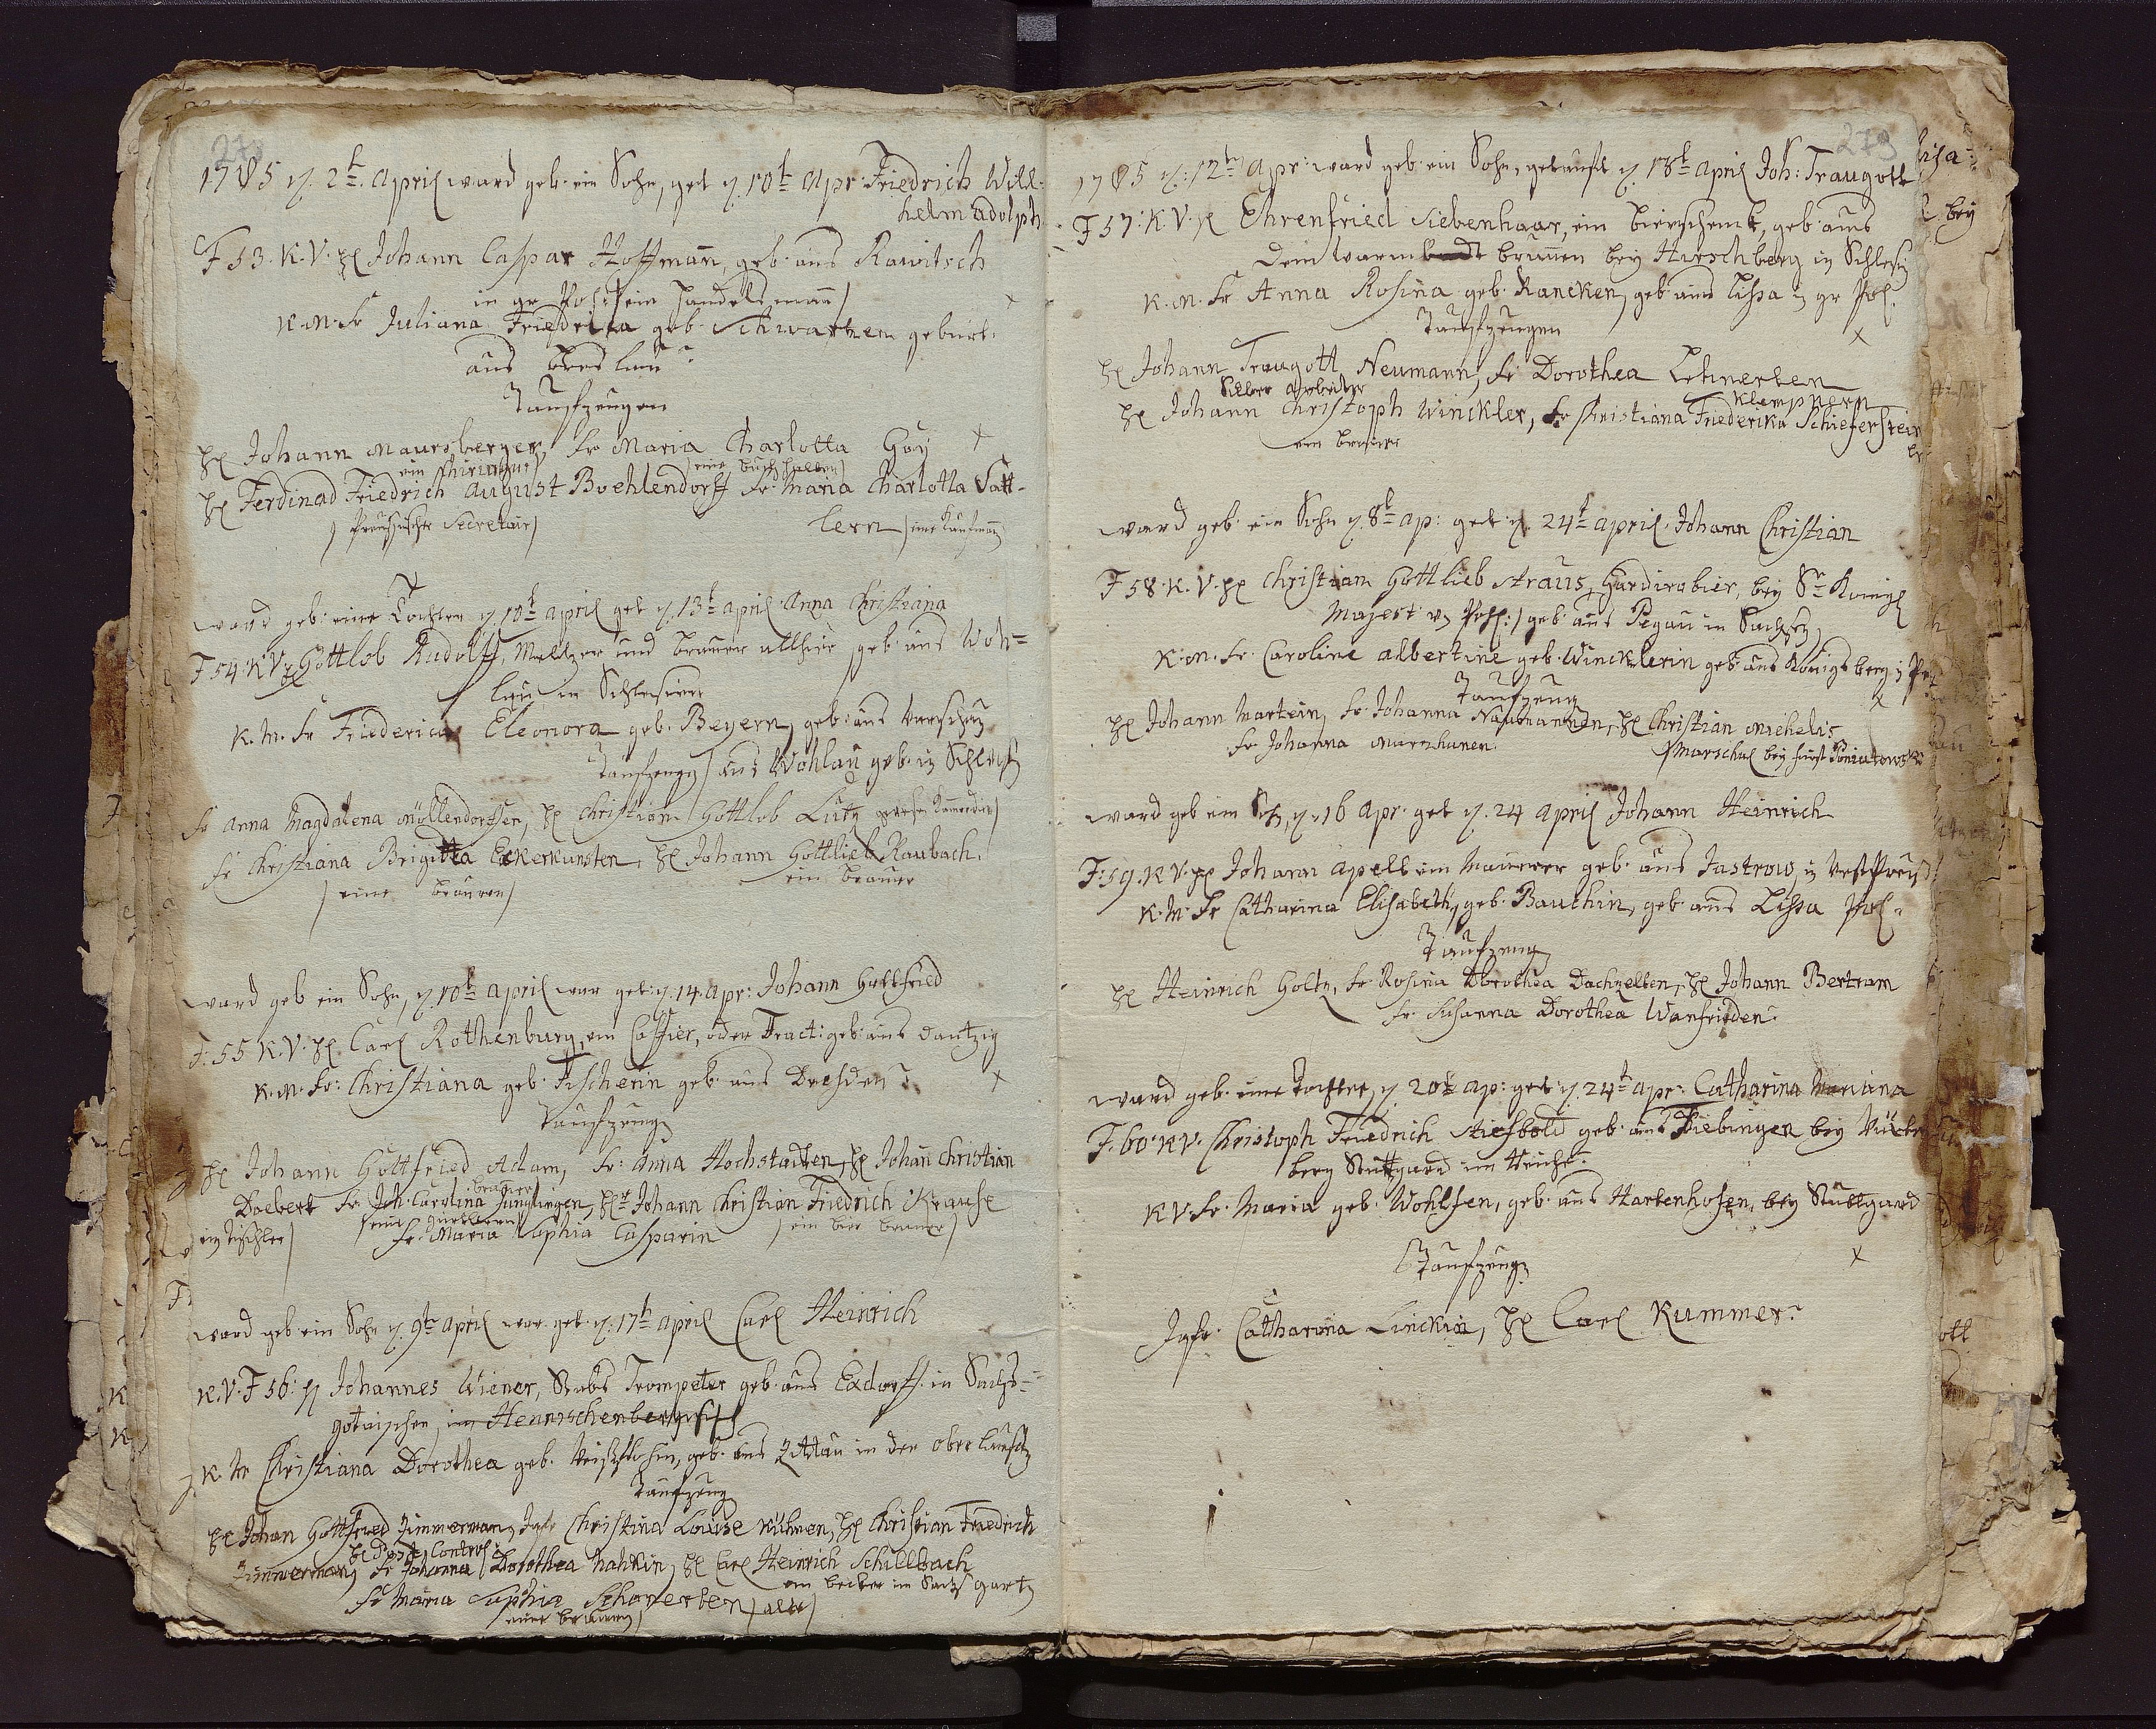 278
1785 d. 2t. April ward geb. ein Sohn, get d. 10t Apr Friedrich Will-
helm Adolph
T 53. K. V. H Johann Caspar Hoffmann, geb. aus Rawitsch
in gr Pohl ein Handelsmann
K. M. Fr Juliana Friedrica geb. Schwartzen geburt.
aus Breslau
Taufzeugen
H Johann Maursberger, Fr Maria Charlotta Gay
ein Chirurgus
H Ferdinad Friedrich August Boehlendorff Fr. Maria Charlotta Satt-
Preusischer Secretair
lern eine Kaufman
ward geb. eine Tochter d. 10t April get d. 13t April Anna Christiana
T 54 K V H Gottlob Rudolff, Meltzer und Brauer allhier geb. aus Woh-
lau in Schlesien
K. M. Fr Friederica Eleonora geb. Beyern, geb. aus Warschau
Taufzeugen aus Wohlau geb. in Schlesien
Fr Anna Magdalena Möllendorffen, H Christian Gottlob Lutz
Fr Christiana Brigitta Eckerkunsten, H Johann Gottlieb Raubach.
eine Brauern
ein Brauer
ward geb ein Sohn, d. 10t April war get: d. 14 Apr: Johann Gottfried
T. 55 K. V. H Carl Rothenburg, ein Caffier, oder Tract: geb. aus Dantzig
K. M. Fr: Christiana geb. Fischerin geb. aus Dresden
Taufzeug
H Johann Gottfried Adam, Fr: Anna Hochstadten, H Johan Christian
Brauer
Daebert Fr Joh. Carolina Junglingen, H Johann Christian Friedrich Krause
ein Tischler
Fr. Maria Sophia Casparin
ein bier brauer
ward geb. ein Sohn d. 9t April war get. d. 17t April Carl Heinrich
K. V. T 56: H Johannes Wiener, Stabs Trompeter geb. aus Exdorff in Sachs-
gotaischen, im
K. M Christiana Dorothea geb. geb. aus Zittau in der ober Lausitz
Taufzeug
H Johan Gottfried Zimmerman, Jgfr Christina Louise Kühnen, H Christian Friedrich
H Post Control
Zimmerman, Fr Johanna Dorothea Hahnin, H Carl Heinrich Schillbach
ein becker im Sachs garten
Fr Maria Sophia Schonerten
eine brauern
279
1785 d. 12t Apr: ward geb. ein Sohn, getauft d. 18t April Joh: Traugott
T 57: K. V. H Ehrenfried Siebenhaar, ein bierschenk, geb. aus
dem warm brunen bey Hirschberg in Schlesi
K. M. Fr Anna Rosina geb. Rancken, geb. aus Lissa in gr Pol.
Taufzeugen
H Johann Traugott Neumann, Fr Dorothea Lehnerten
Silber arbeiter
Klempnern
H Johann Christoph Winckler, Fr Christiana Friederika Schieferstein
ein brauer
ward geb. ein Sohn d. 8t Ap: get: d. 24t April Johann Christian
T 58. K. V. H Christian Gottlieb Straus, Gardirobier, bey Sr König
Majest. v Pohl: geb. aus Pegau in Sachsen
K. M. Fr. Caroline Albertine geb. Wincklerin geb. aus Königsberg in Pr
Taufzeug
H Johann Martein, Fr Johanna Naumannen, H Christian Michelis
Fr Johanna
Marschal bey fürst Poniatowski
ward geb ein Soh, d. 16 Apr. get d. 24 April Johann Heinrich
T: 59. K V. H Johann Apell ein Maurer geb. aus Jastrow in Westpreus
K. M. Fr Catharina Elisabeth, geb. Bauchin, geb. aus Lissa Pol.
Taufzeug
H Heinrich Goltz, Fr. Rosina Dorothea Dachzelten, H Johann Bertram
Fr. Susanna Dorothea Wanfrieden.
ward geb. eine Tochter, d. 20t Ap: get: d. 24t Apr: Catharina Mariana
T. 60. K V. Christoph Friedrich Stiefbold geb. aus Tiebingen bey
berg Stuttgard im Reiche.
K V. Fr. Maria geb. Wohlfen, geb. aus Hartenhofen, bey Stuttgard
Taufzeug
Jgfr. Catharina Linckin, H Carl Kummer.